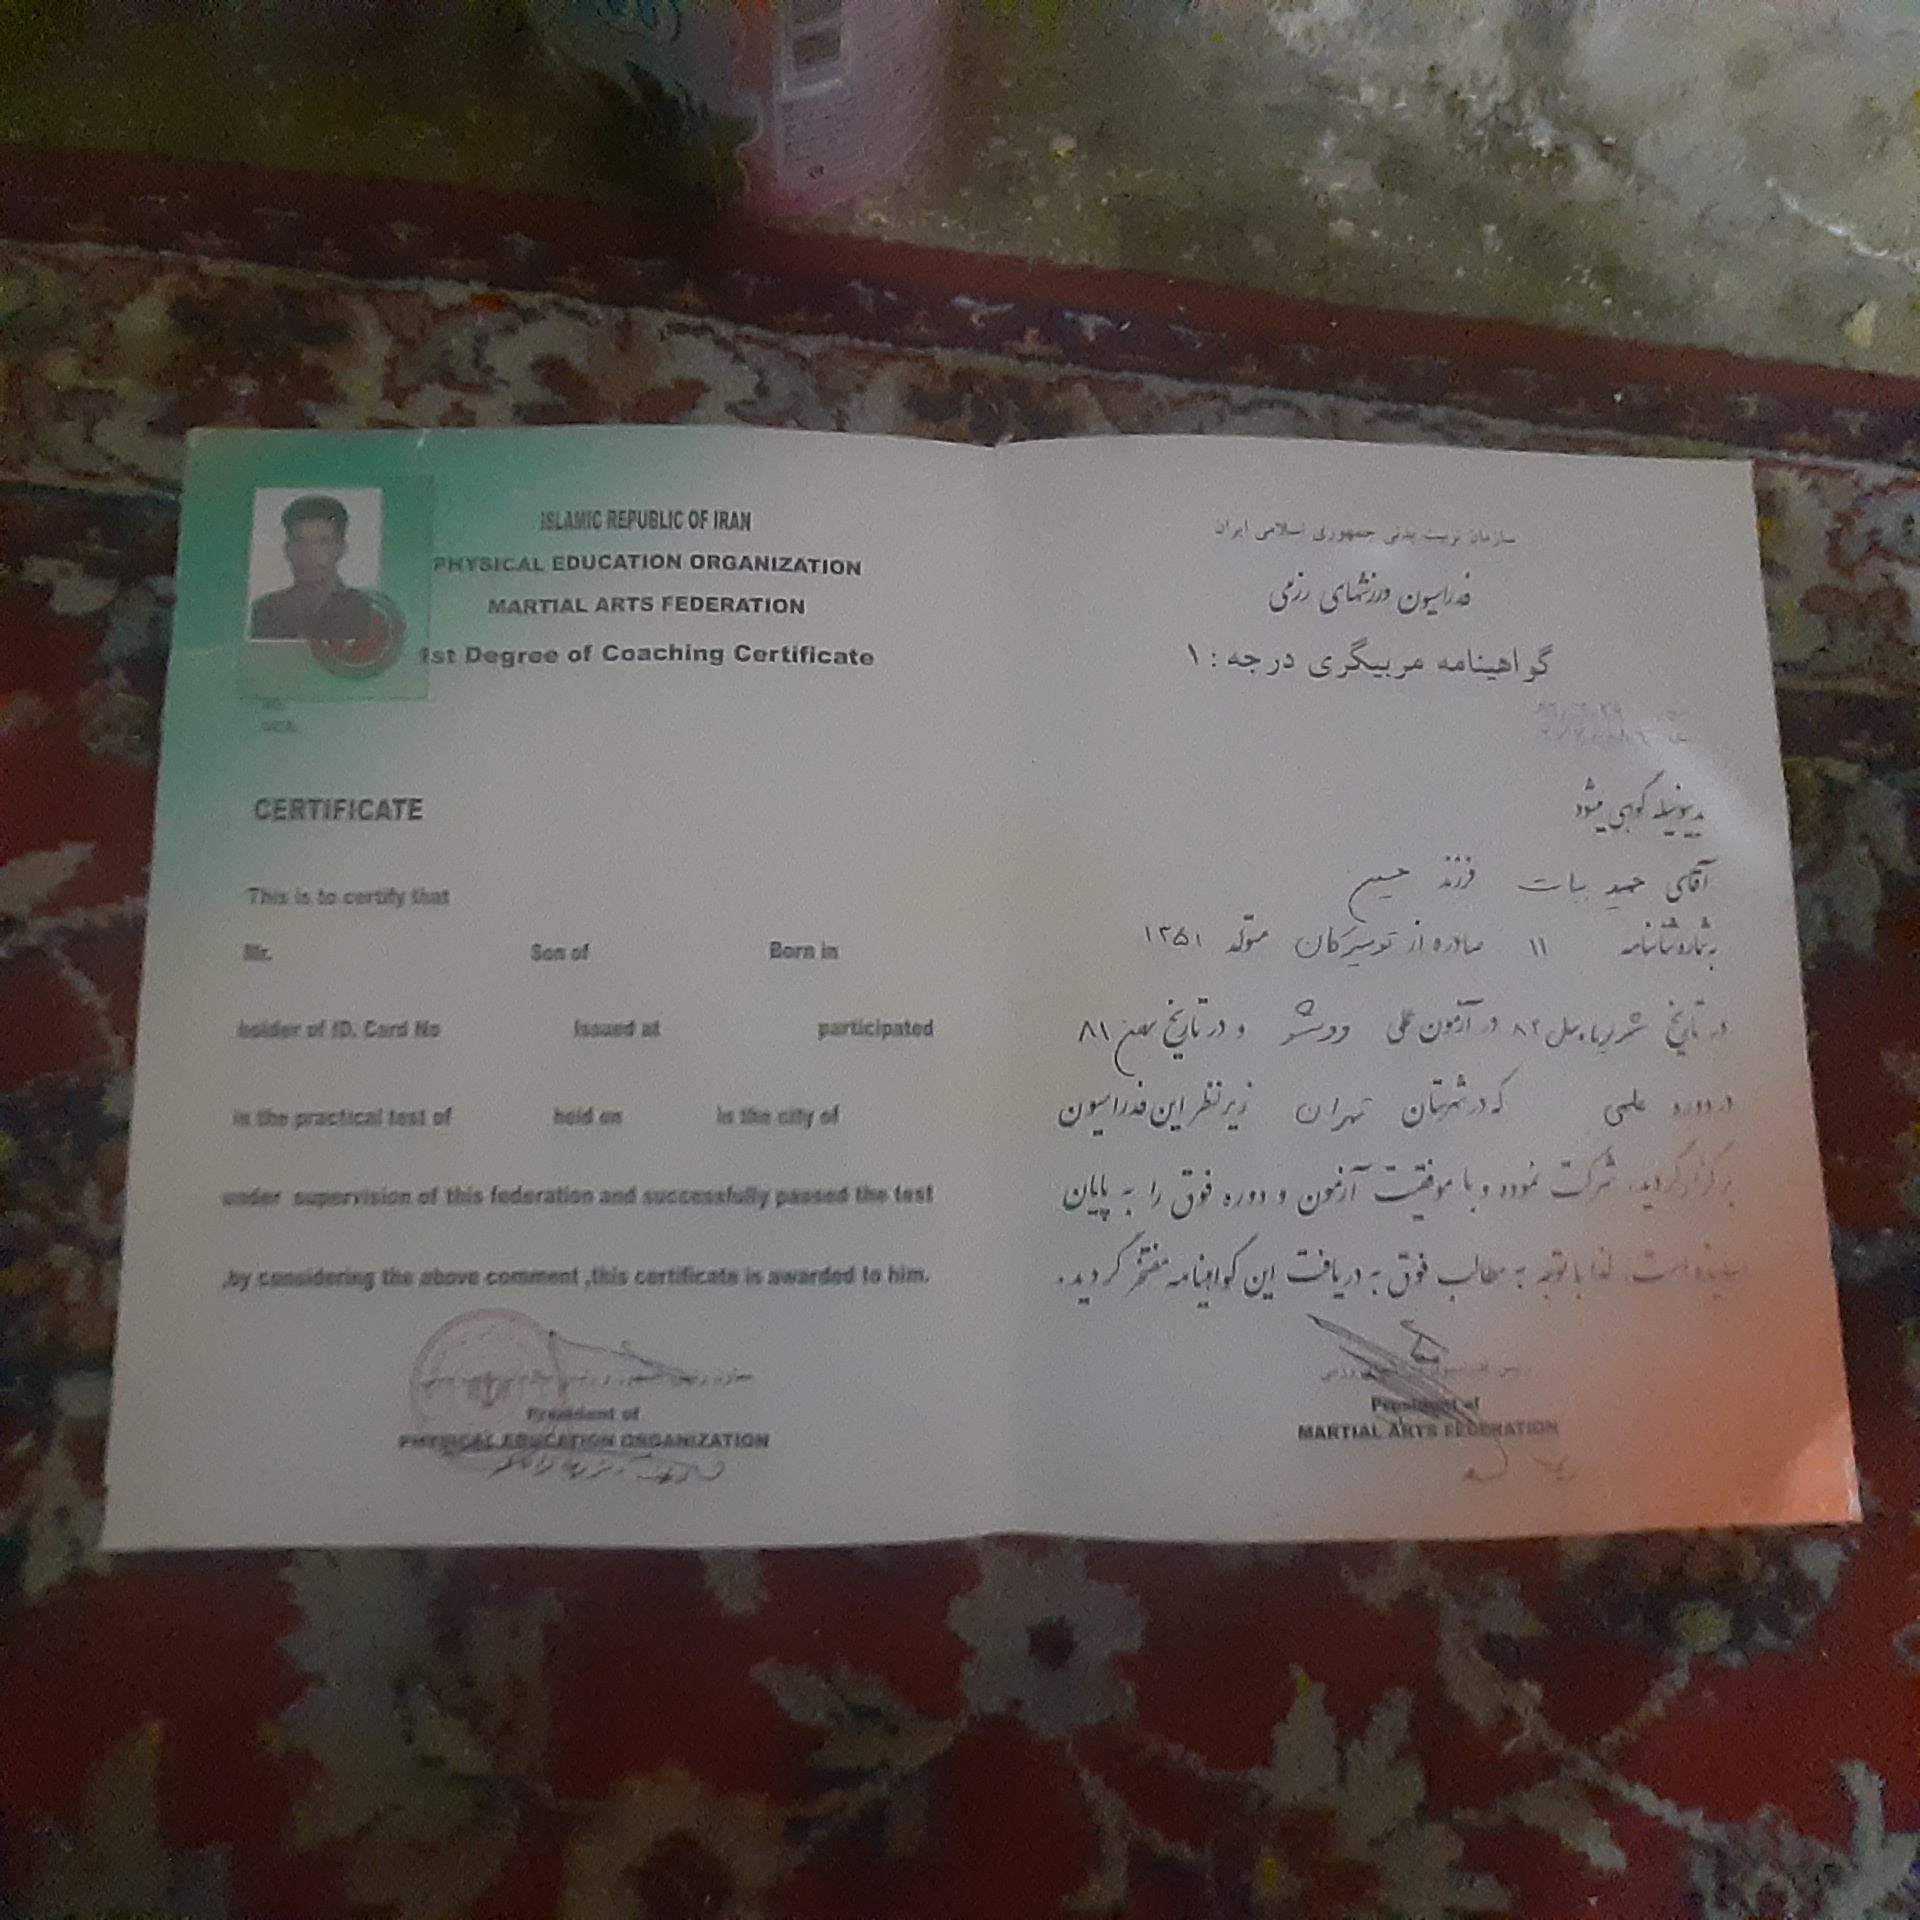 ISLAMIC REPUBLIC OF IRAN
PHYSICAL EDUCATION ORGANIZATION
MARTIAL ARTS FEDERATION
1st Degree of Coaching Certificate
CERTIFICATE
This is to certify that
Mr. Son of Born in
holder of ID. Card No Issued at participated
in the practical test of held on in the city of
under supervision of this federation and successfully passed the test
,by considering the above comment ,this certificate is awarded to him.
President of
PHYSICAL EDUCATION ORGANIZATION
سازمان تربیت بدنی جمهوری اسلامی ایران
فدراسیون ورزشهای رزمی
گواهینامه مربیگری درجه : ۱
بدینوسیله گواهی میشود
آقای حمید بیات فرزند حسین
به شماره شناسنامه ۱۱ صادره از تویسرکان متولد ۱۳۵۱
در تاریخ در آزمون عملی ووشو و در تاریخ بهمن ۸۱
در دوره علمی که در شهرستان تهران زیر نظر این فدراسیون
برگزار گردید، شرکت نموده و با موفقیت آزمون و دوره فوق را به پایان
رسانیده است. لذا با توجه به مطالب فوق به دریافت این گواهینامه مفتخر گردید.
President of
MARTIAL ARTS FEDERATION